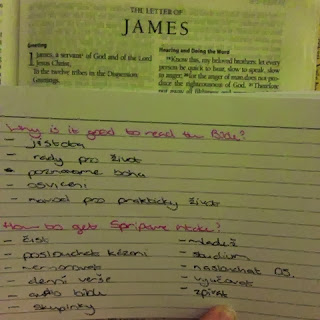 THE LETTER OF
JAMES
Greeting
James, a servant of God and of the Lord
Jesus Christ,
To the twelve tribes in the Dispersion:
Greetings.
Hearing and Doing the Word
Know this, my beloved brothers: let every
person be quick to hear, slow to speak, slow
to anger; for the anger of man does not pro-
duce the righteousness of God. Therefore
put away all filthiness and
Why is it good to read the Bible?
- jistota
- rady pro život
- poznáváme boha
- osvícení
- návod pro praktický život
How to get Scripture
- číst
- poslouchat kázení
- memorovat
- denní verše
- audio bible
- skupinky
- mládež
- studium
- naslouchat DS.
- vyučovat
- zpívat